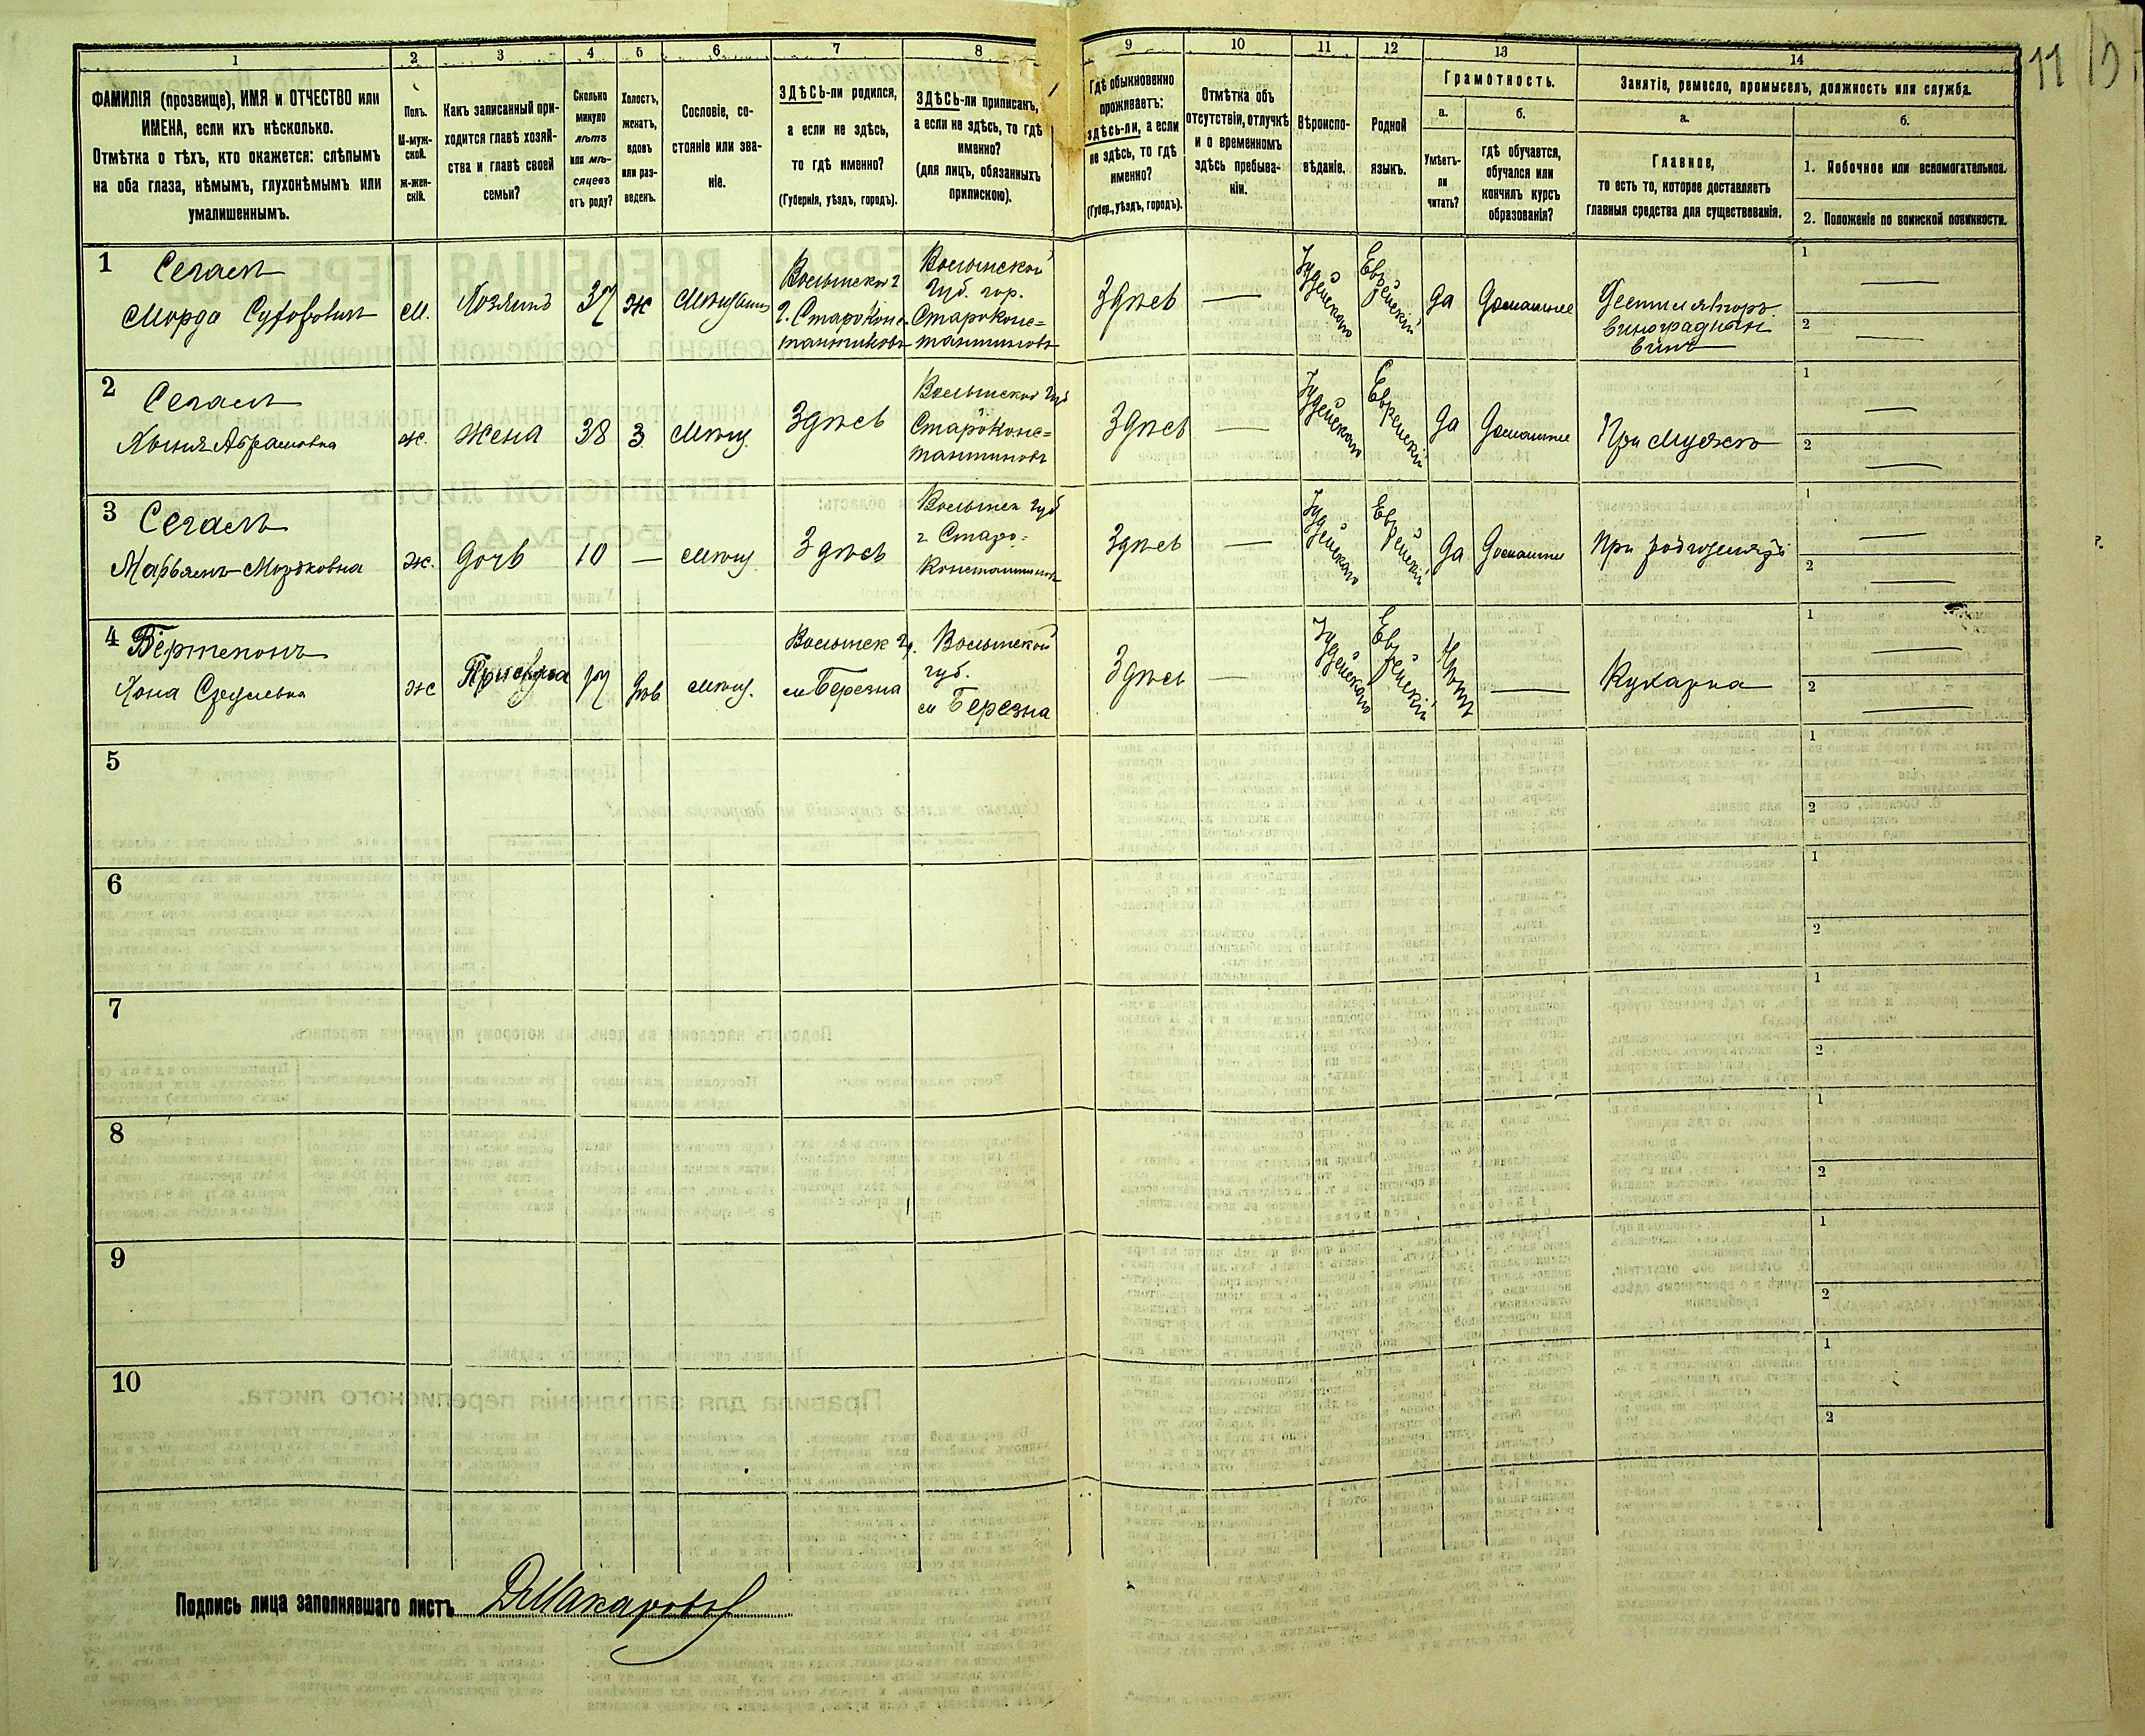 1
ФАМИЛІЯ (прозвище), ИМЯ и ОТЧЕСТВО или
ИМЕНА, если ихъ нѣсколько.
Отмѣтка о тѣхъ, кто окажется: слѣпымъ
на оба глаза, нѣмымъ, глухонѣмымъ или
умалишеннымъ.
2
Полъ.
М-муж-
ской.
ж-жен-
скій.
3
Какъ записанный при-
ходится главѣ хозяй-
ства и главѣ своей
семьи?
4
Сколько
минуло
лѣтъ
или мѣ-
сяцевъ
отъ роду?
5
Холостъ,
женатъ,
вдовъ
или раз-
веденъ.
6
Сословіе, со-
стояніе или зва-
ніе.
7
ЗДѢСЬ-ли родился,
а если не здѣсь,
то гдѣ именно?
(Губернія, уѣздъ, городъ).
8
ЗДѢСЬ-ли приписанъ,
а если не здѣсь, то гдѣ
именно?
(для лицъ, обязанныхъ
припискою).
9
Гдѣ обыкновенно
проживаетъ:
здѣсь-ли, а если
не здѣсь, то гдѣ
именно?
(Губер., уѣздъ, городъ).
10
Отмѣтка объ
отсутствіи, отлучкѣ
и о временномъ
здѣсь пребыва-
ніи.
11
Вѣроиспо-
вѣданіе.
12
Родной
языкъ.
13
Грамотность.
а.
Умѣетъ-
ли
читать?
б.
гдѣ обучается,
обучался или
кончилъ курсъ
образованія?
14
Занятіе, ремесло, промыселъ, должность или служба.
а.
Главное,
то есть то, которое доставляетъ
главныя средства для существованія.
б.
1. Побочное или вспомогательное.
2. Положеніе по воинской повинности.
11
1
Сегаль
Мордо
м.
Хозяинъ
37
ж
Волынской г
г. Старокон-
стантиновъ
Волынской
губ. гор.
Староконс=
тантиновъ
Здѣсь
—
Іудейское
Еврейскій
да
домашнее
виноградныхъ
винъ
1 —
2 —
2
Сегаль
Абрамовна
ж.
жена
38
З
мѣщ.
Здѣсь
Волынской губ
Староконс=
тантиновъ
Здѣсь
—
Іудейское
Еврейскій
да
домашнее
При мужѣ
1 —
2 —
3
Сегаль
Мордковна
ж.
дочь
10
—
мѣщ.
Здѣсь
Волынск губ
г Старо=
Константиновъ
Здѣсь
—
Іудейское
Еврейскій
да
домашнее
При родителяхъ
1 —
2 —
4
ж
Прислуга
17
дѣв
мѣщ.
Волынск г.
м Березна
Волынской
губ.
м Березна
Здѣсь
—
Іудейское
Еврейскій
Нѣтъ
—
Кухарка
1 —
2 —
5
1
2
6
1
2
7
1
2
8
1
2
9
1
2
10
1
2
Подпись лица заполнявшаго листъ ДМакаровъ